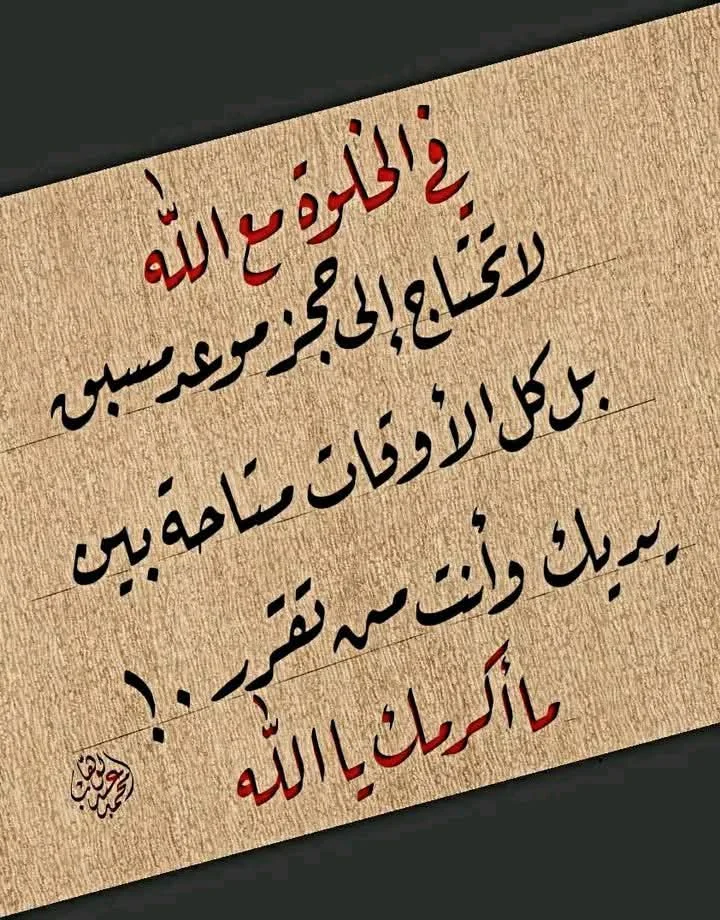 في الخلوة مع الله
لا تحتاج إلى حجز موعد مسبق
بل كل الأوقات متاحة بين
يديك وأنت من تقرر .!
ما أكرمك يا الله